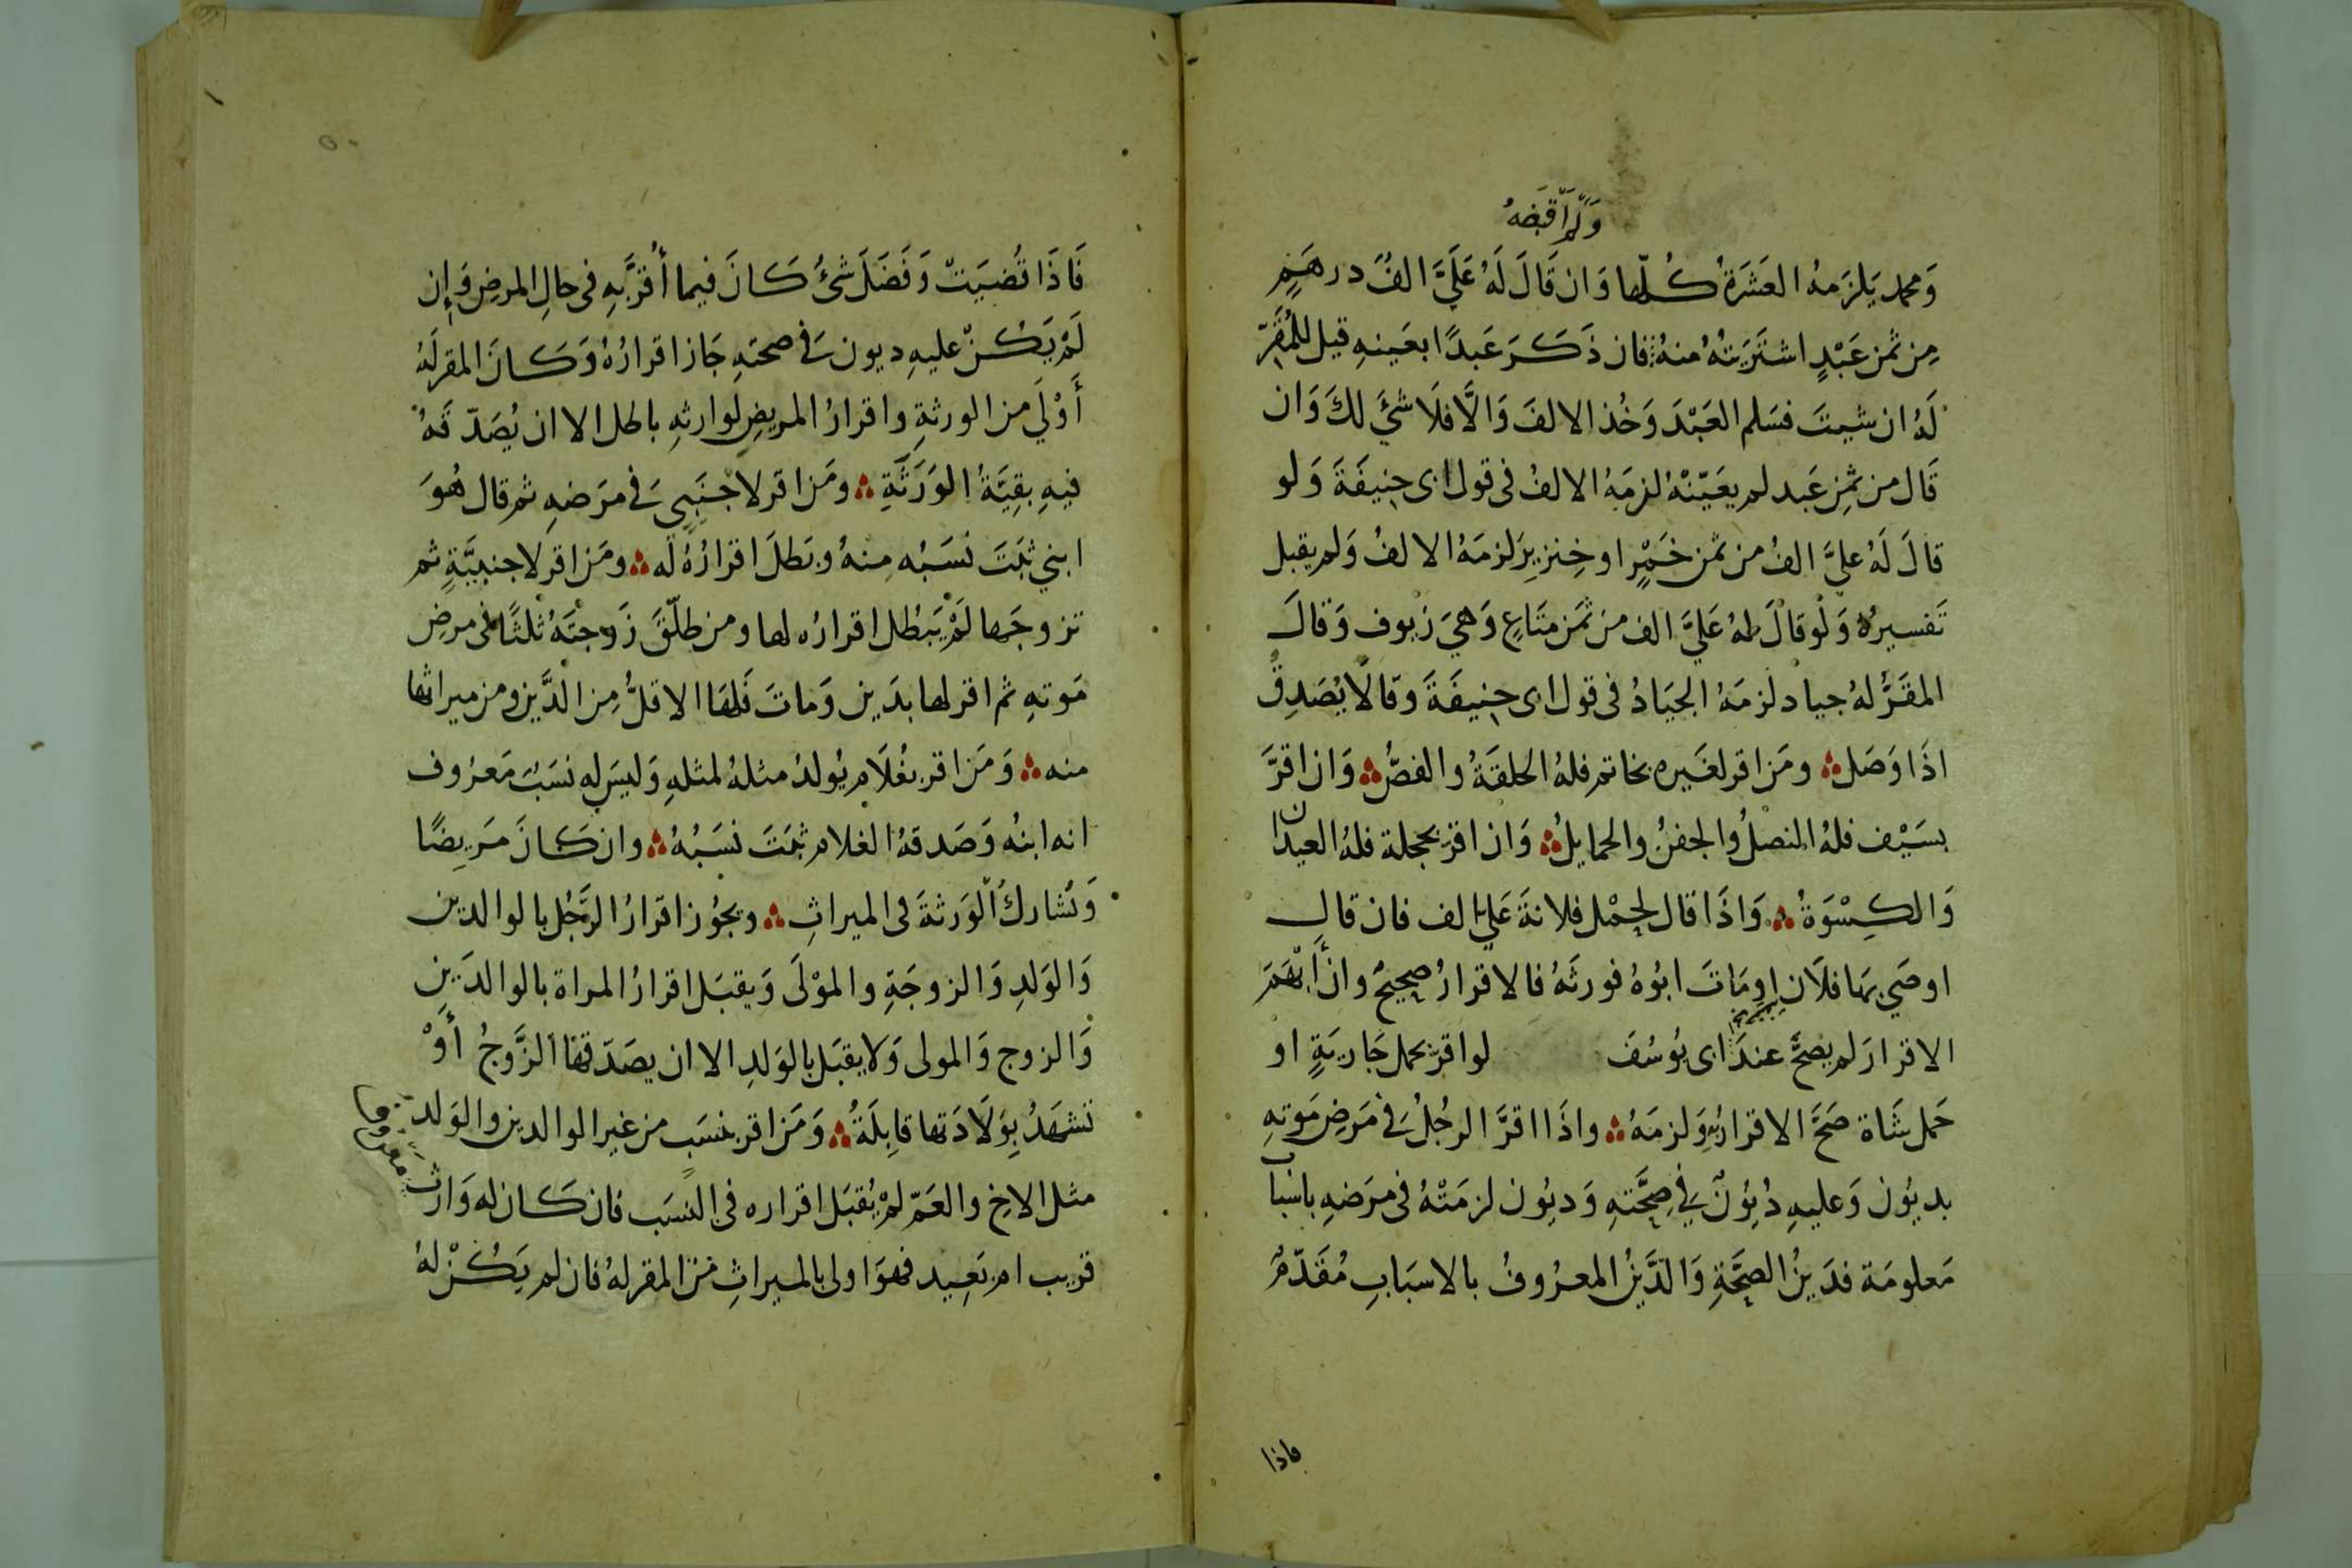 ولم اقبضه
وَمحمد يَلزَمهُ العَشَرَةُ كُلّها وَان قَالَ لَهُ عَلَيَّ الفُ درهَمٍ
مِن ثمن عَبْدٍ اشتَرَيتُهُ منهُ فان ذَكَرَ عَبدًا بعَينهِ قيل للمُقَرّ
لَهُ ان شيتَ فسَلم العَبْدَ وَخُذ الالفَ وَالَّا فلَا شئَ لكَ وَان
قَال من ثمنِ عَبد لم يعَيّنْهُ لزمَهُ الالفُ فى قول ابى حنِيفَةَ وَلو
قالَ لَهُ عليَّ الفُ من ثمن خَمْرٍ او خِنزيرٍ لزمَهُ الالفُ وَلم يقبل
تَفسيرُه وَلَو قالَ لهُ عَلَيَّ الف من ثمَن متَاعٍ وَهيَ زيوف وَقالَ
المقَرُّ لهُ جياد لزمَهُ الجيَادُ فى قول ابى حنِيفَةَ وقالَا يُصَدقُ
اذَا وَصَل ومَن اقر لغَيره بخاتم فلهُ الحلقَةُ والفصُّ وَان اقرَّ
بسَيْف فلهُ النصلُ والجفنُ والحمايلُ وَان اقرّ بحجلة فلهُ العيدان
وَالكِسْوَةُ وَاذَا قال لحِمْل فلانةَ عَليَّ الف فان قال
اوصَي بهَا فلَان او مَاتَ ابُوهُ فورثَهُ فالاقرارُ صحِيحٌ وان أَبْهَمَ
الاقرارَ لم يصحَّ عندَ ابى يُوسُفَ لو اقرّ بحمل جَاريَةٍ او
حَمل شَاة صَحَّ الاقرارُ بهِ وَلزمَهُ واذَا اقرَّ الرجُلُ فى مَرَضِ مَوتهِ
بديُون وَعليهِ دُيُونٌ فى صِحَّتهِ وَديُون لزمَتْهُ فى مرَضهِ باسْبَاب
مَعلومَة فدَينُ الصِحَّةِ وَالدَّينُ المعرُوفُ بالاسبَابِ مُقَدّمٌ
فاذا
فَاذَا قُضيَتْ وَفَضَلَ شئُ كَانَ فيما أُقرَّبهِ فى حالِ المرضِ وَإن
لَمْ يَكُنْ عليهِ ديون فى صحتهِ جَاز اقرارُهُ وَكَانَ المقر لَهُ
أَوْلَي من الورثةِ واقرارُ المريضِ لوارثهِ باطل الا ان يُصَدّقَهُ
فيهِ بقِيَّةُ الوَرَثَةِ ومَن اقر لاجنَبِيّ فى مرَضهِ ثم قال هُوَ
ابني ثبَتَ نسَبُه مِنهُ وبَطلَ اقرارُهُ لَه ومَن اقر لاجنبيَّةٍ ثم
تزوجَها لَمْ يَبْطُل اقرارُه لها ومن طلّقَ زَوجتَهُ ثلثًا فى مرضِ
مَوتهِ ثم اقر لها بدَين وَماتَ فَلهَا الاقلُّ مِن الدَّين ومن ميراثها
منه وَمَن اقر بغُلَام يُولدُ مثلهُ لمثلهِ وَليسَ لهِ نسَبُ مَعرُوف
انه ابنُه وَصَدقهُ الغلام ثبَتَ نسَبُهُ وان كَانَ مَريضًا
وَتُشاركُ الوَرثةَ فى الميراثِ ويجُوز اقرارُ الرَّجُل بالوالدَين
وَالوَلدِ وَالزوجَةِ والموْلَى وَيقبَل اقرارُ المراة بالوالدَينِ
وَالزوج وَالمولى وَلا يقبَل بالوَلدِ الا ان يصَدّقهَا الزَّوجُ أَوْ
تَشهَدُ بِوَلَادَتها قابِلَةُ وَمَن اقر بنسَبٍ من غير الوالدين والوَلد
مثل الاخِ والعَمّ لَمْ يُقبَل اقراره فى النسَب فان كَان له وَارث
معروف
قريب ام بَعِيد فهوَ اولى بالميراثِ منَ المقر لهُ فان لم يَكُنْ لهُ